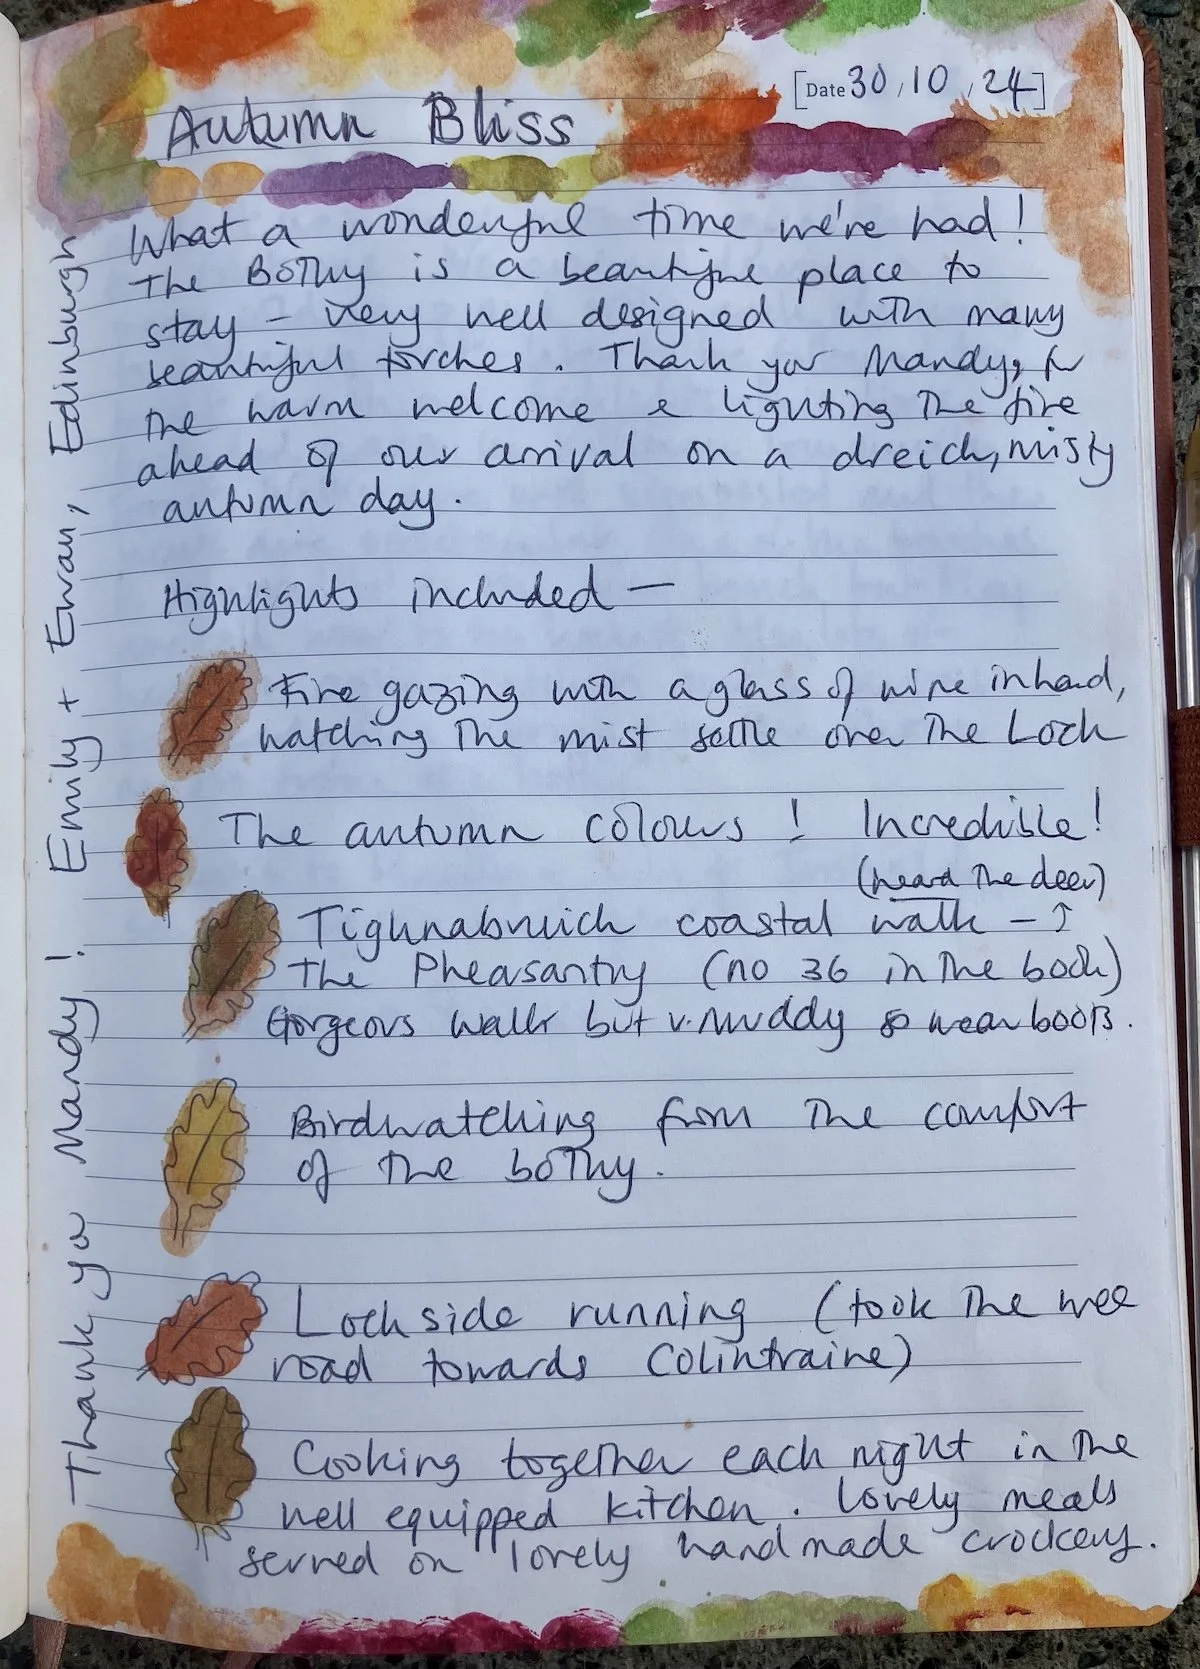 [Date 30/10/24]
Autumn Bliss
What a wonderful time we've had!
The Bothy is a beautiful place to
stay – very well designed with many
beautiful torches. Thank you Mandy, for
the warm welcome & lighting the fire
ahead of our arrival on a dreich, misty
autumn day.
Highlights included —
Fire gazing with a glass of wine in hand,
watching the mist settle over the Loch
The autumn colours! Incredible!
(heard the deer)
Tighnabruich coastal walk – ↑
The Pheasantry (no 36 in the book)
Gorgeous walk but v. muddy so wear boots.
Birdwatching from the comfort
of the bothy.
Lochside running (took the wee
road towards Colintraine)
Cooking together each night in the
well equipped kitchen. Lovely meals
served on lovely handmade crockery.
Thank you Mandy! Emily + Ewan, Edinburgh